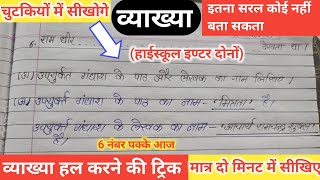 चुटकियों में सीखोगे
व्याख्या
इतना सरल कोई नहीं
बता सकता
राम धीर ...
देखता था।
(हाईस्कूल इण्टर दोनों)
(अ) उपर्युक्त गद्यांश के पाठ और लेखक का नाम लिखिए।
(अ) उपर्युक्त गद्यांश के पाठ का नाम- 'मित्रता' है।
उपर्युक्त गद्यांश के लेखक का नाम- 'आचार्य रामचन्द्र शुक्ल'
है।
6 नंबर पक्के आज
व्याख्या हल करने की ट्रिक
मात्र दो मिनट में सीखिए